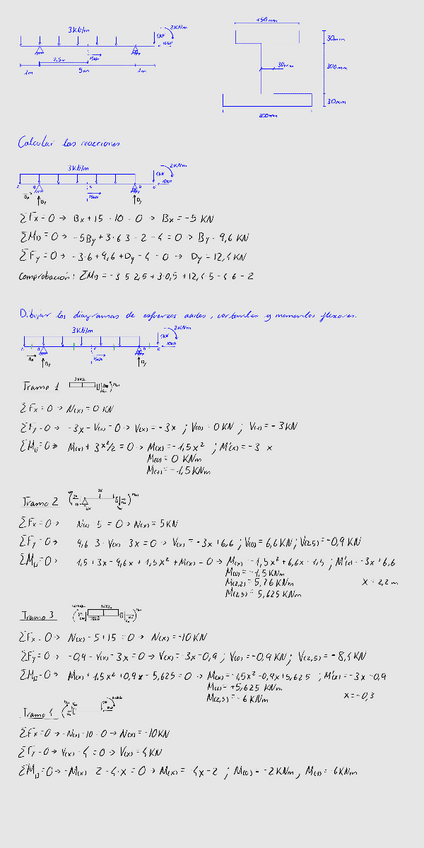 3KN/m
2KNm
150mm
30mm
30mm
300mm
30mm
200mm
2,5m
1m
5m
Calcular las reacciones
3KN/m
2KNm
ΣFx = 0 → Bx + 15 - 10 = 0 → Bx = -5 KN
ΣMD = 0 → -5By + 3·6·3 - 2 - 4 = 0 → By = 9,6 KN
ΣFy = 0 → -3·6 + 9,6 + Dy - 4 = 0 → Dy = 12,4 KN
Comprobación:
Dibujar los diagramas de esfuerzos axiles, cortantes y momentos flexores.
3KN/m
2KNm
Tramo 1
ΣFx = 0 → N(x) = 0 KN
ΣFy = 0 → -3x - V(x) = 0 → V(x) = -3x ; V(0) = 0 KN ; V(1) = -3KN
M(x) + 3x²/2 = 0 → M(x) = -1,5x² ; M'(x) = -3x
M(0) = 0 KNm
M(1) = -1,5 KNm
Tramo 2
ΣFx = 0 → N(x) - 5 = 0 → N(x) = 5KN
ΣFy = 0 → 9,6 - 3 - V(x) - 3x = 0 → V(x) = -3x + 6,6 ; V(0) = 6,6 KN ; V(2,5) = -0,9 KN
1,5 + 3x - 9,6x + 1,5x² + M(x) = 0 → M(x) = -1,5x² + 6,6x - 1,5 ; M'(x) = -3x + 6,6
M(0) = -1,5 KNm
M(2,2) = 5,76 KNm
x = 2,2 m
M(2,5) = 5,625 KNm
Tramo 3
ΣFx = 0 → N(x) - 5 + 15 = 0 → N(x) = -10 KN
ΣFy = 0 → -0,9 - V(x) - 3x = 0 → V(x) = 3x - 0,9 ; V(0) = -0,9 KN ; V(2,5) = -8,4 KN
M(x) + 1,5x² + 0,9x - 5,625 = 0 → M(x) = -1,5x² - 0,9x + 5,625 ; M'(x) = -3x - 0,9
M(0) = +5,625 KNm
x = -0,3
M(2,5) = -6 KNm
Tramo 4
ΣFx = 0 → -N(x) - 10 = 0 → N(x) = -10 KN
ΣFy = 0 → V(x) - 4 = 0 → V(x) = 4 KN
-M(x) - 2 - 4·x = 0 → M(x) = -4x - 2 ; M(0) = -2KNm , M(1) = -6KNm